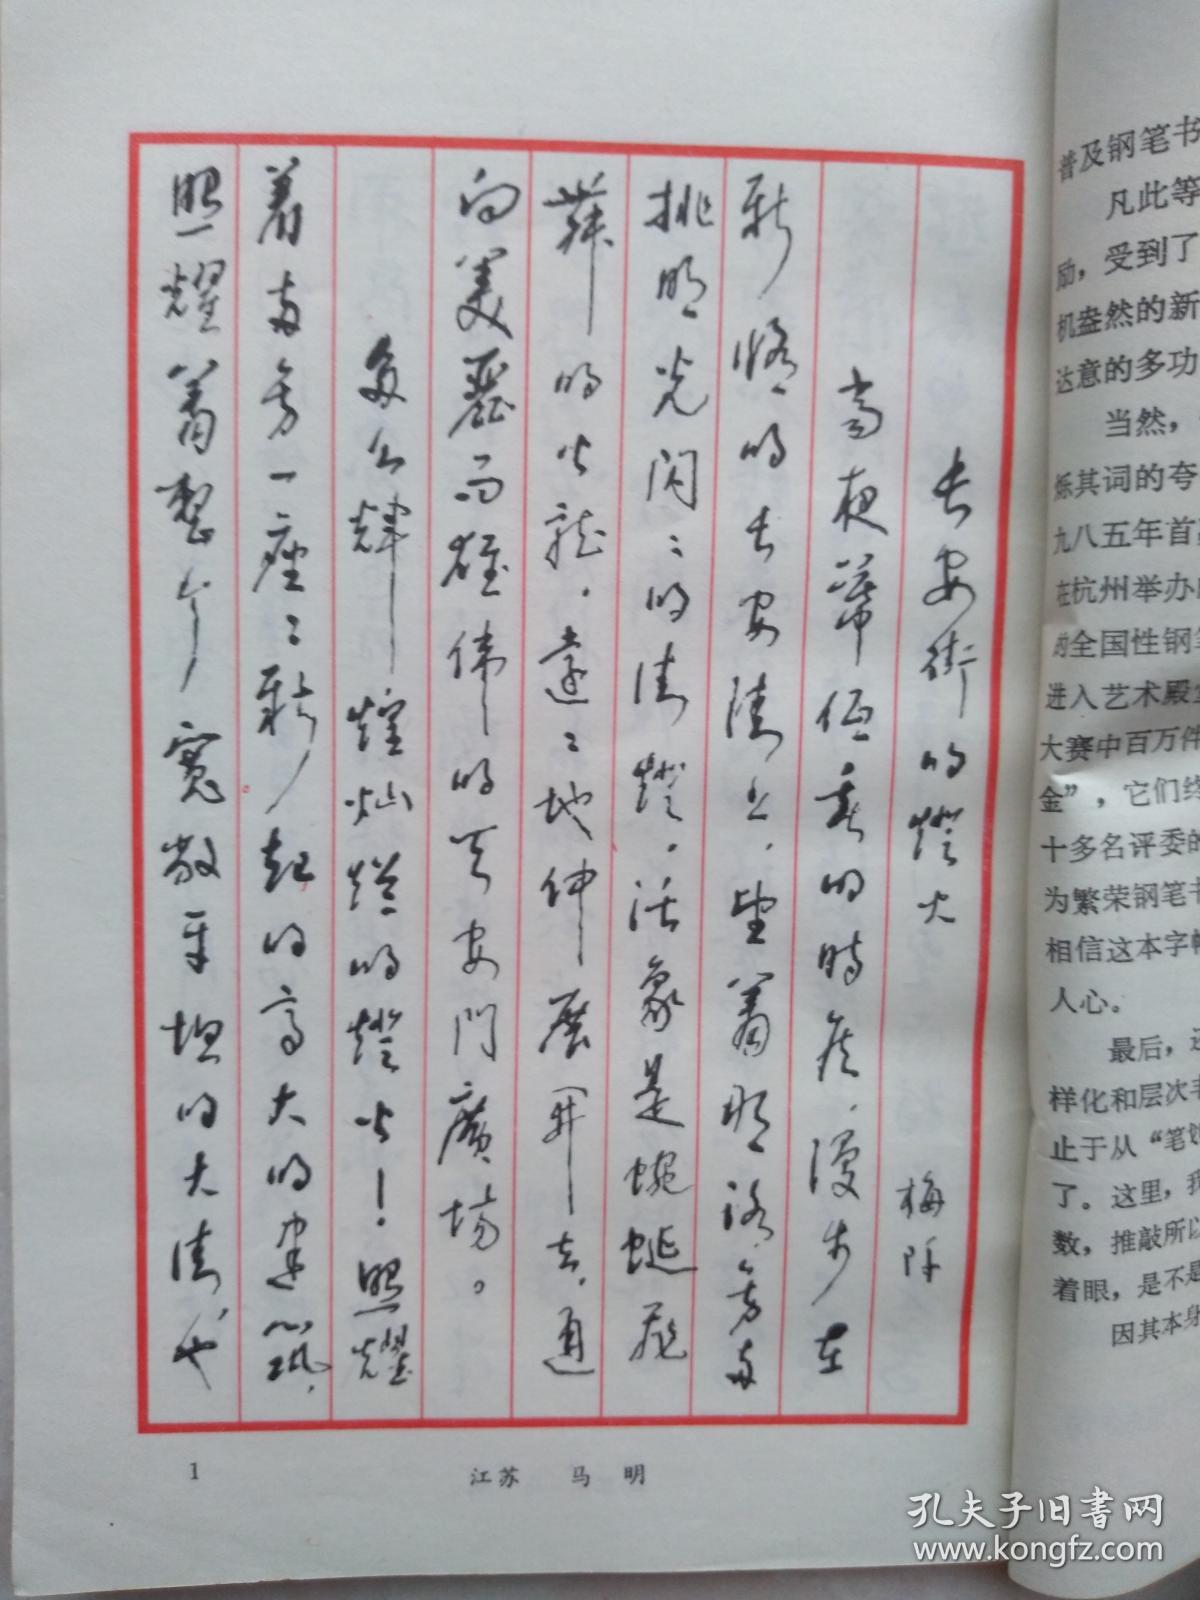 长安街的燈火
梅阡
當夜幕低垂的時候，漫步在
新修的长安街上，望着那路旁两
挑明光闪〻的街燈，活象是蜿蜒飛
舞的火龍，遠〻地伸展開去，通
向美麗而雄偉的天安門廣場。
多么輝煌灿爛的燈火！照耀
着两旁一座〻新起的高大的建築，
照耀着整个寬敞平坦的大街，也
1
江苏 马明
普及钢笔书
凡此等
励，受到了
机盎然的新
达意的多功
当然，
烁其词的夸
九八五年首
在杭州举办
的全国性钢
进入艺术殿
大赛中百万件
金”，它们终
十多名评委的
为繁荣钢笔书
相信这本字帖
人心。
最后，还
样化和层次丰
止于从“笔划
了。这里，我
数，推敲所以
着眼，是不是
因其本身
孔夫子旧书网
www.kongfz.com